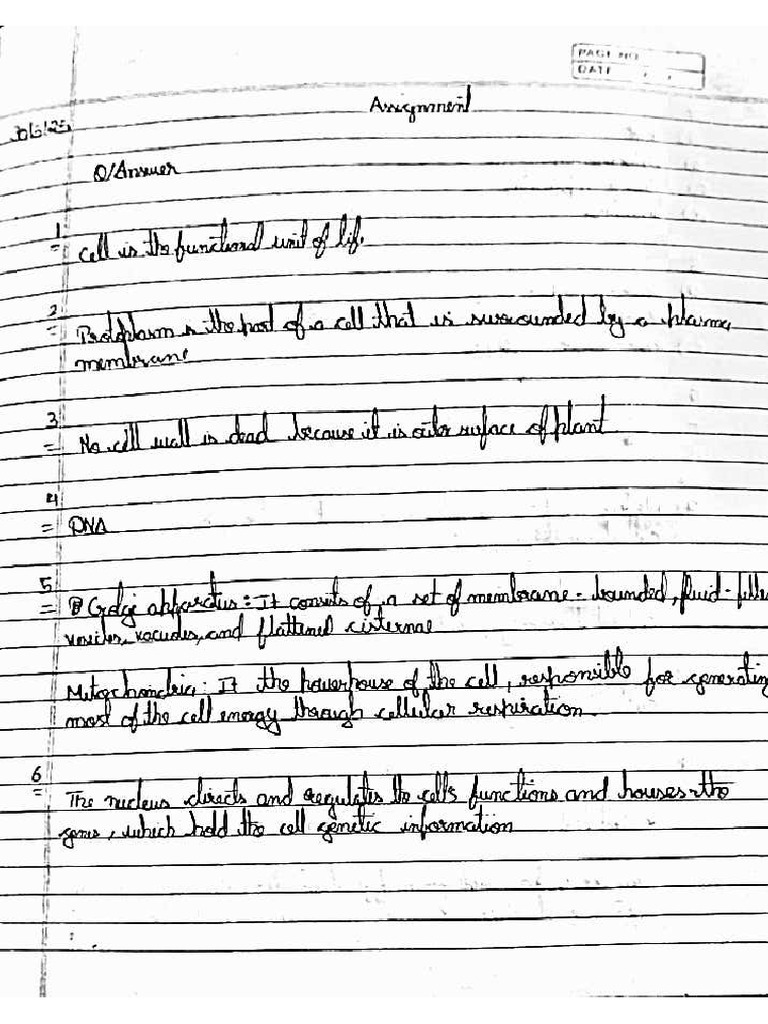 PAGE NO.
DATE
Assignment
Q/Answer
1
= Cell is the functional unit of life.
2
= Protoplasm is the part of a cell that is surrounded by a plasma
membrane
3
= No cell wall is dead because it is outer surface of plant
4
= DNA
5
= Golgi apparatus : It consists of a set of membrane - bounded, fluid - fille
vesicles, vacuoles, and flattened cisternae
Mitochondria : It the powerhouse of the cell, responsible for generating
most of the cell energy through cellular respiration
6
= The nucleus directs and regulates the cell's functions and houses the
genes, which hold the cell genetic information